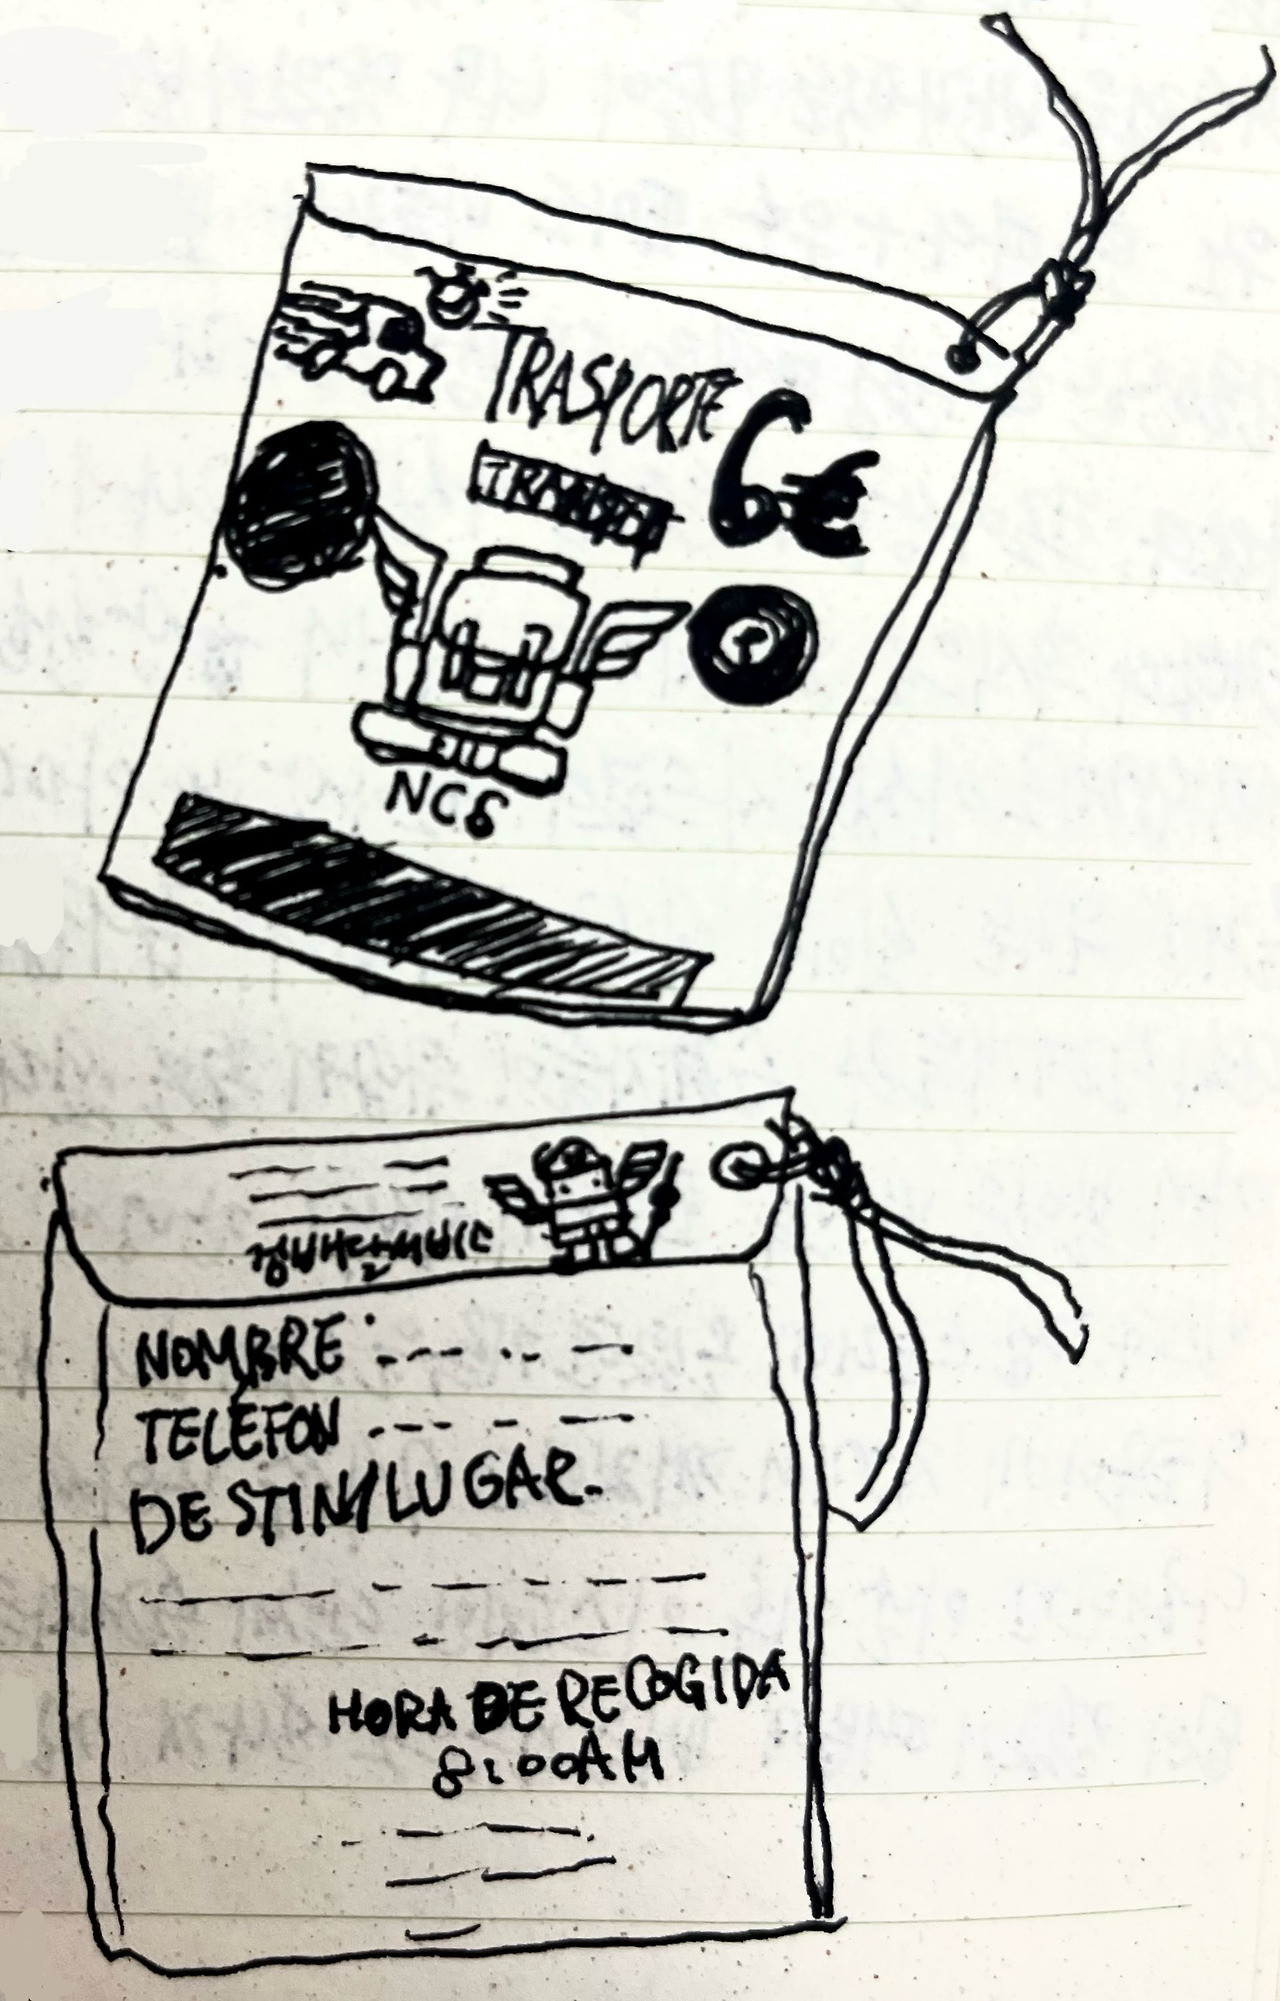 TRASPORTE
6€
TRANSPOR
NCS
짐배달서비스
NOMBRE:
TELÉFON
DESTIN/LUGAR.
HORA DE RECOGIDA
8:00AM